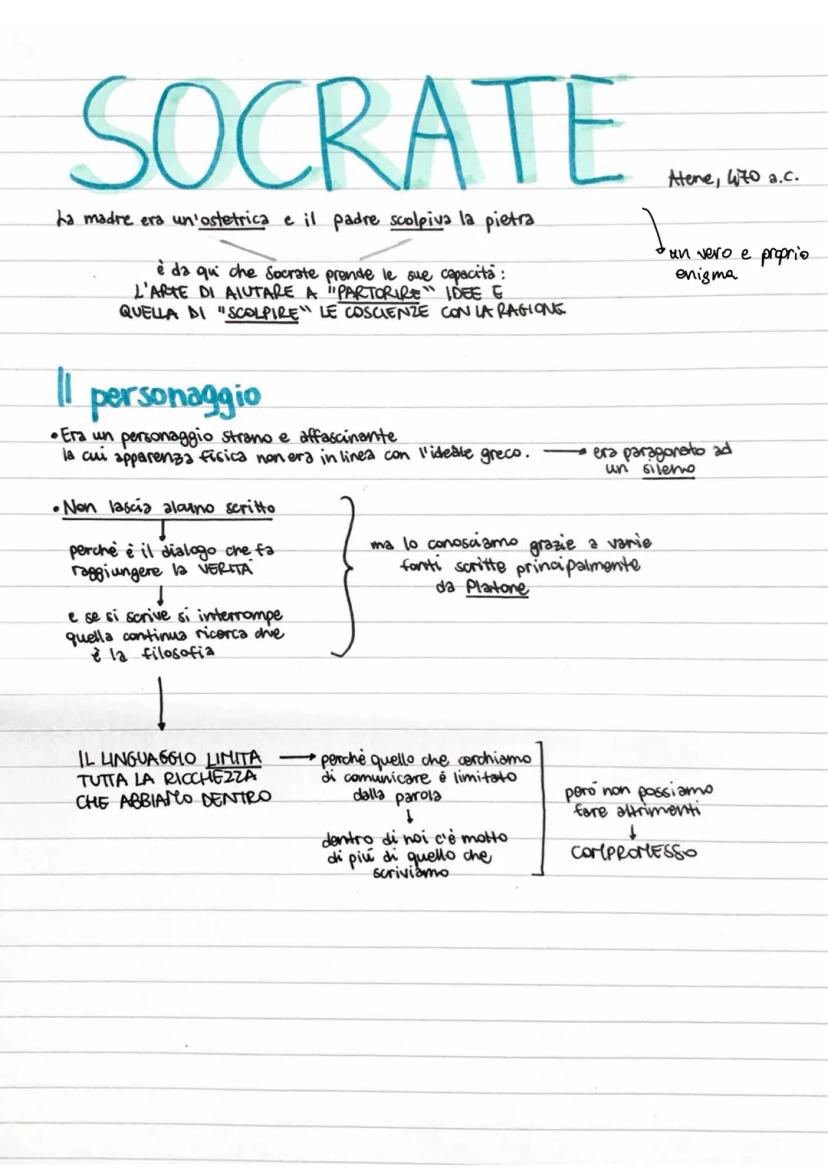 SOCRATE
Atene, 470 a.C.
La madre era un'ostetrica e il padre scolpiva la pietra
un vero e proprio
enigma
è da qui che Socrate prende le sue capacità:
L'ARTE DI AIUTARE A "PARTORIRE" IDEE E
QUELLA DI "SCOLPIRE" LE COSCIENZE CON LA RAGIONE
Il personaggio
•Era un personaggio strano e affascinante
la cui apparenza fisica non era in linea con l'ideale greco. → era paragonato ad
un sileno
•Non lascia alcuno scritto
↓
perché è il dialogo che fa
raggiungere la VERITÀ
↓
e se si scrive si interrompe
quella continua ricerca che
è la filosofia
ma lo conosciamo grazie a varie
fonti scritte principalmente
da Platone
↓
IL LINGUAGGIO LIMITA →
TUTTA LA RICCHEZZA
CHE ABBIAMO DENTRO
perché quello che cerchiamo
di comunicare è limitato
dalla parola
↓
dentro di noi c'è molto
di più di quello che
scriviamo
però non possiamo
fare altrimenti
↓
COMPROMESSO